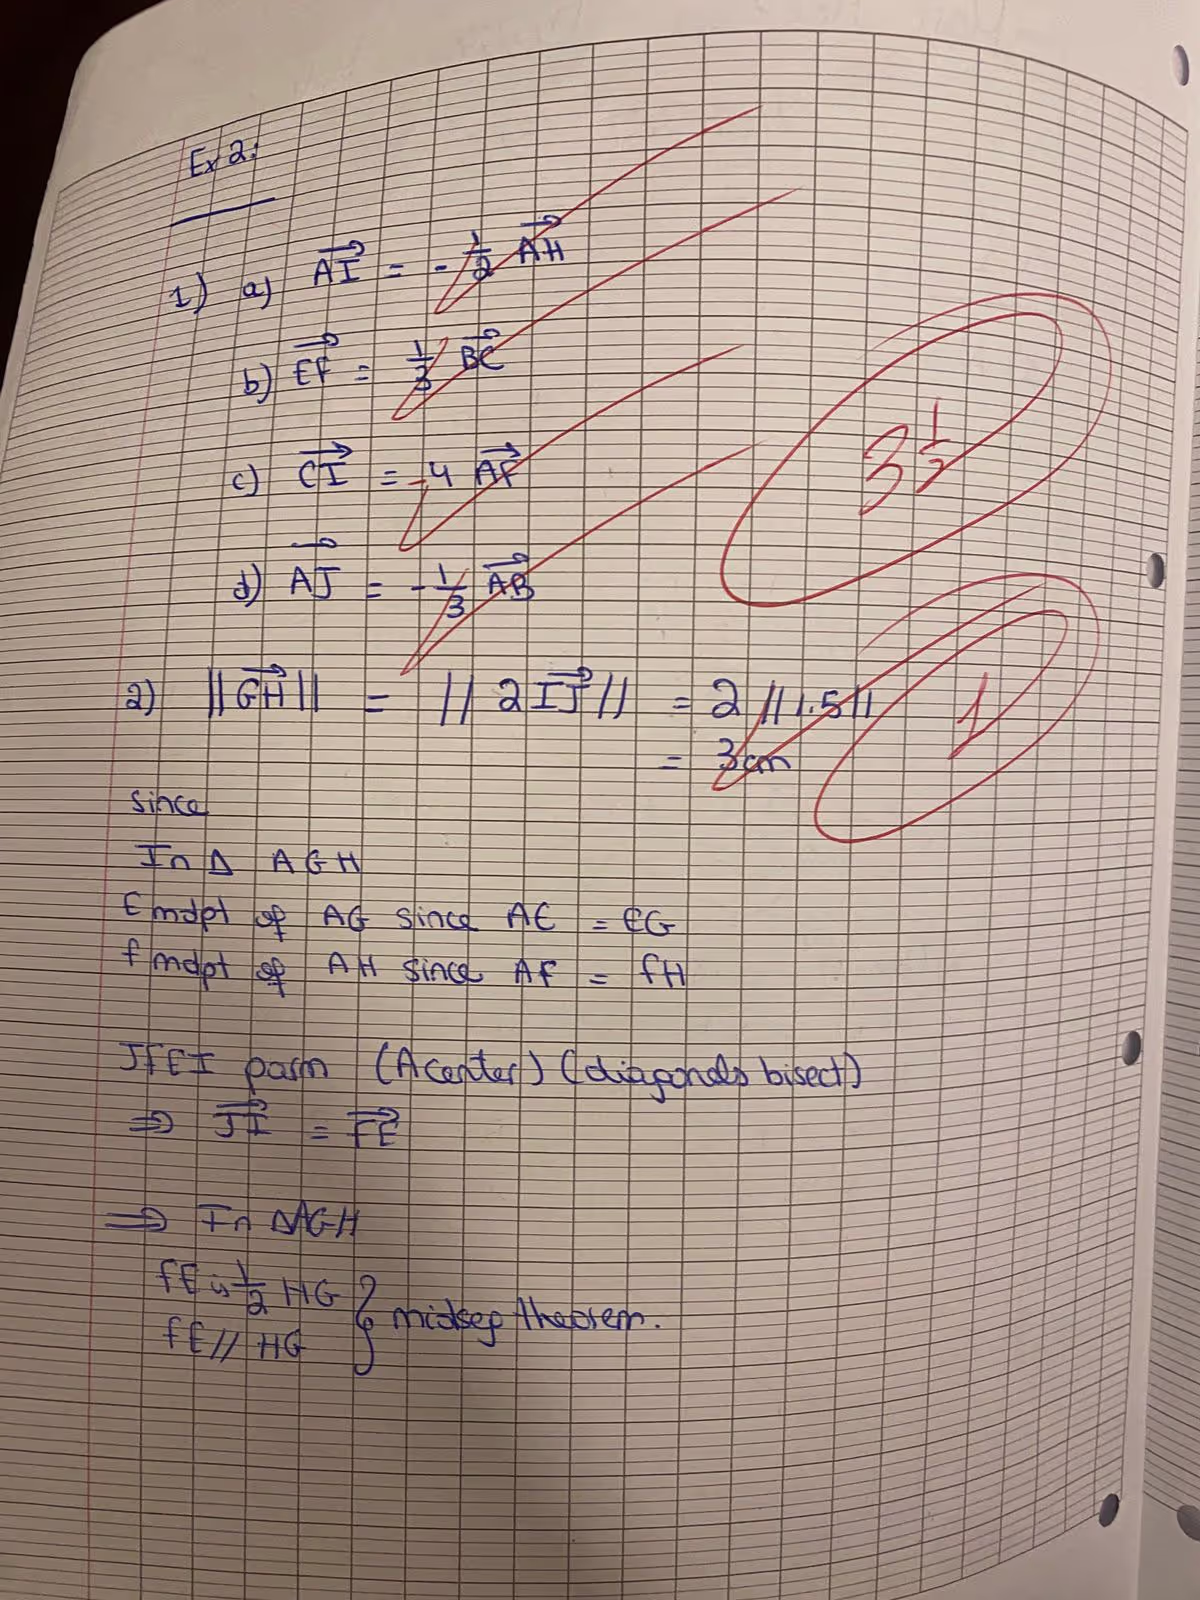 Ex 2:
1) a) AI = - 1/2 AH
b) EF = 1/3 BC
c) CI = -4 AF
d) AJ = - 1/3 AB
3 1/2
2) ||GH|| = || 2 IJ || = 2 ||1.5||
= 3cm
1
since
In Δ AGH
E mdpt of AG since AE = EG
f mdpt of AH since AF = fH
JfEI parm (A center) (diagonals bisect)
⇒ JI = FE
⇒ In ΔAGH
fE is 1/2 HG
fE // HG } midseg theorem.